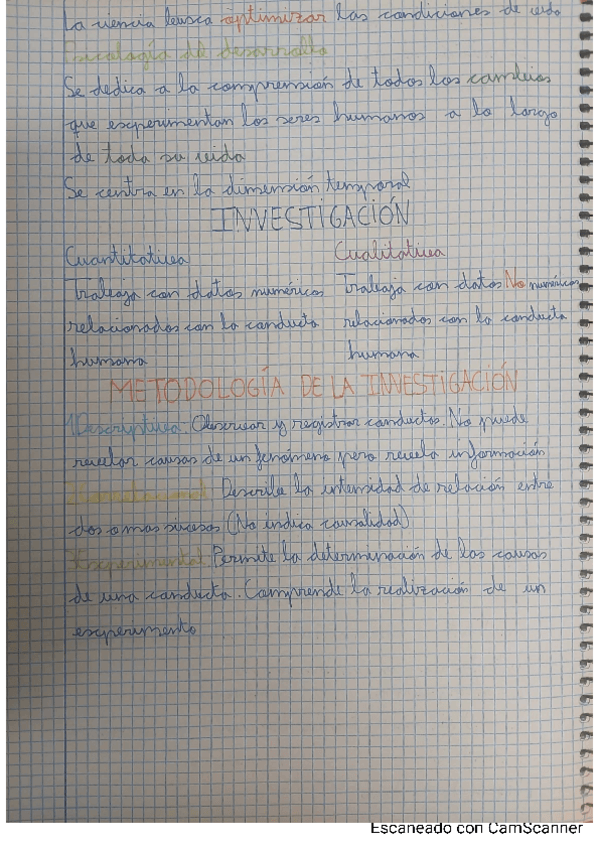 La ciencia busca optimizar las condiciones de vida
Psicología del desarrollo
Se dedica a la comprensión de todos los cambios
que experimentan los seres humanos a lo largo
de toda su vida
Se centra en la dimensión temporal
INVESTIGACIÓN
Cuantitativa Cualitativa
Trabaja con datos numéricos Trabaja con datos No numéricos
relacionados con la conducta relacionados con la conducta
humana humana
METODOLOGÍA DE LA INVESTIGACIÓN
1Descriptiva: Observar y registrar conductas. No puede
revelar causas de un fenómeno pero revela información
Describe la intensidad de relación entre
dos o mas sucesos (No indica causalidad)
3Experimental: Permite la determinación de las causas
de una conducta. Comprende la realización de un
experimento
Escaneado con CamScanner